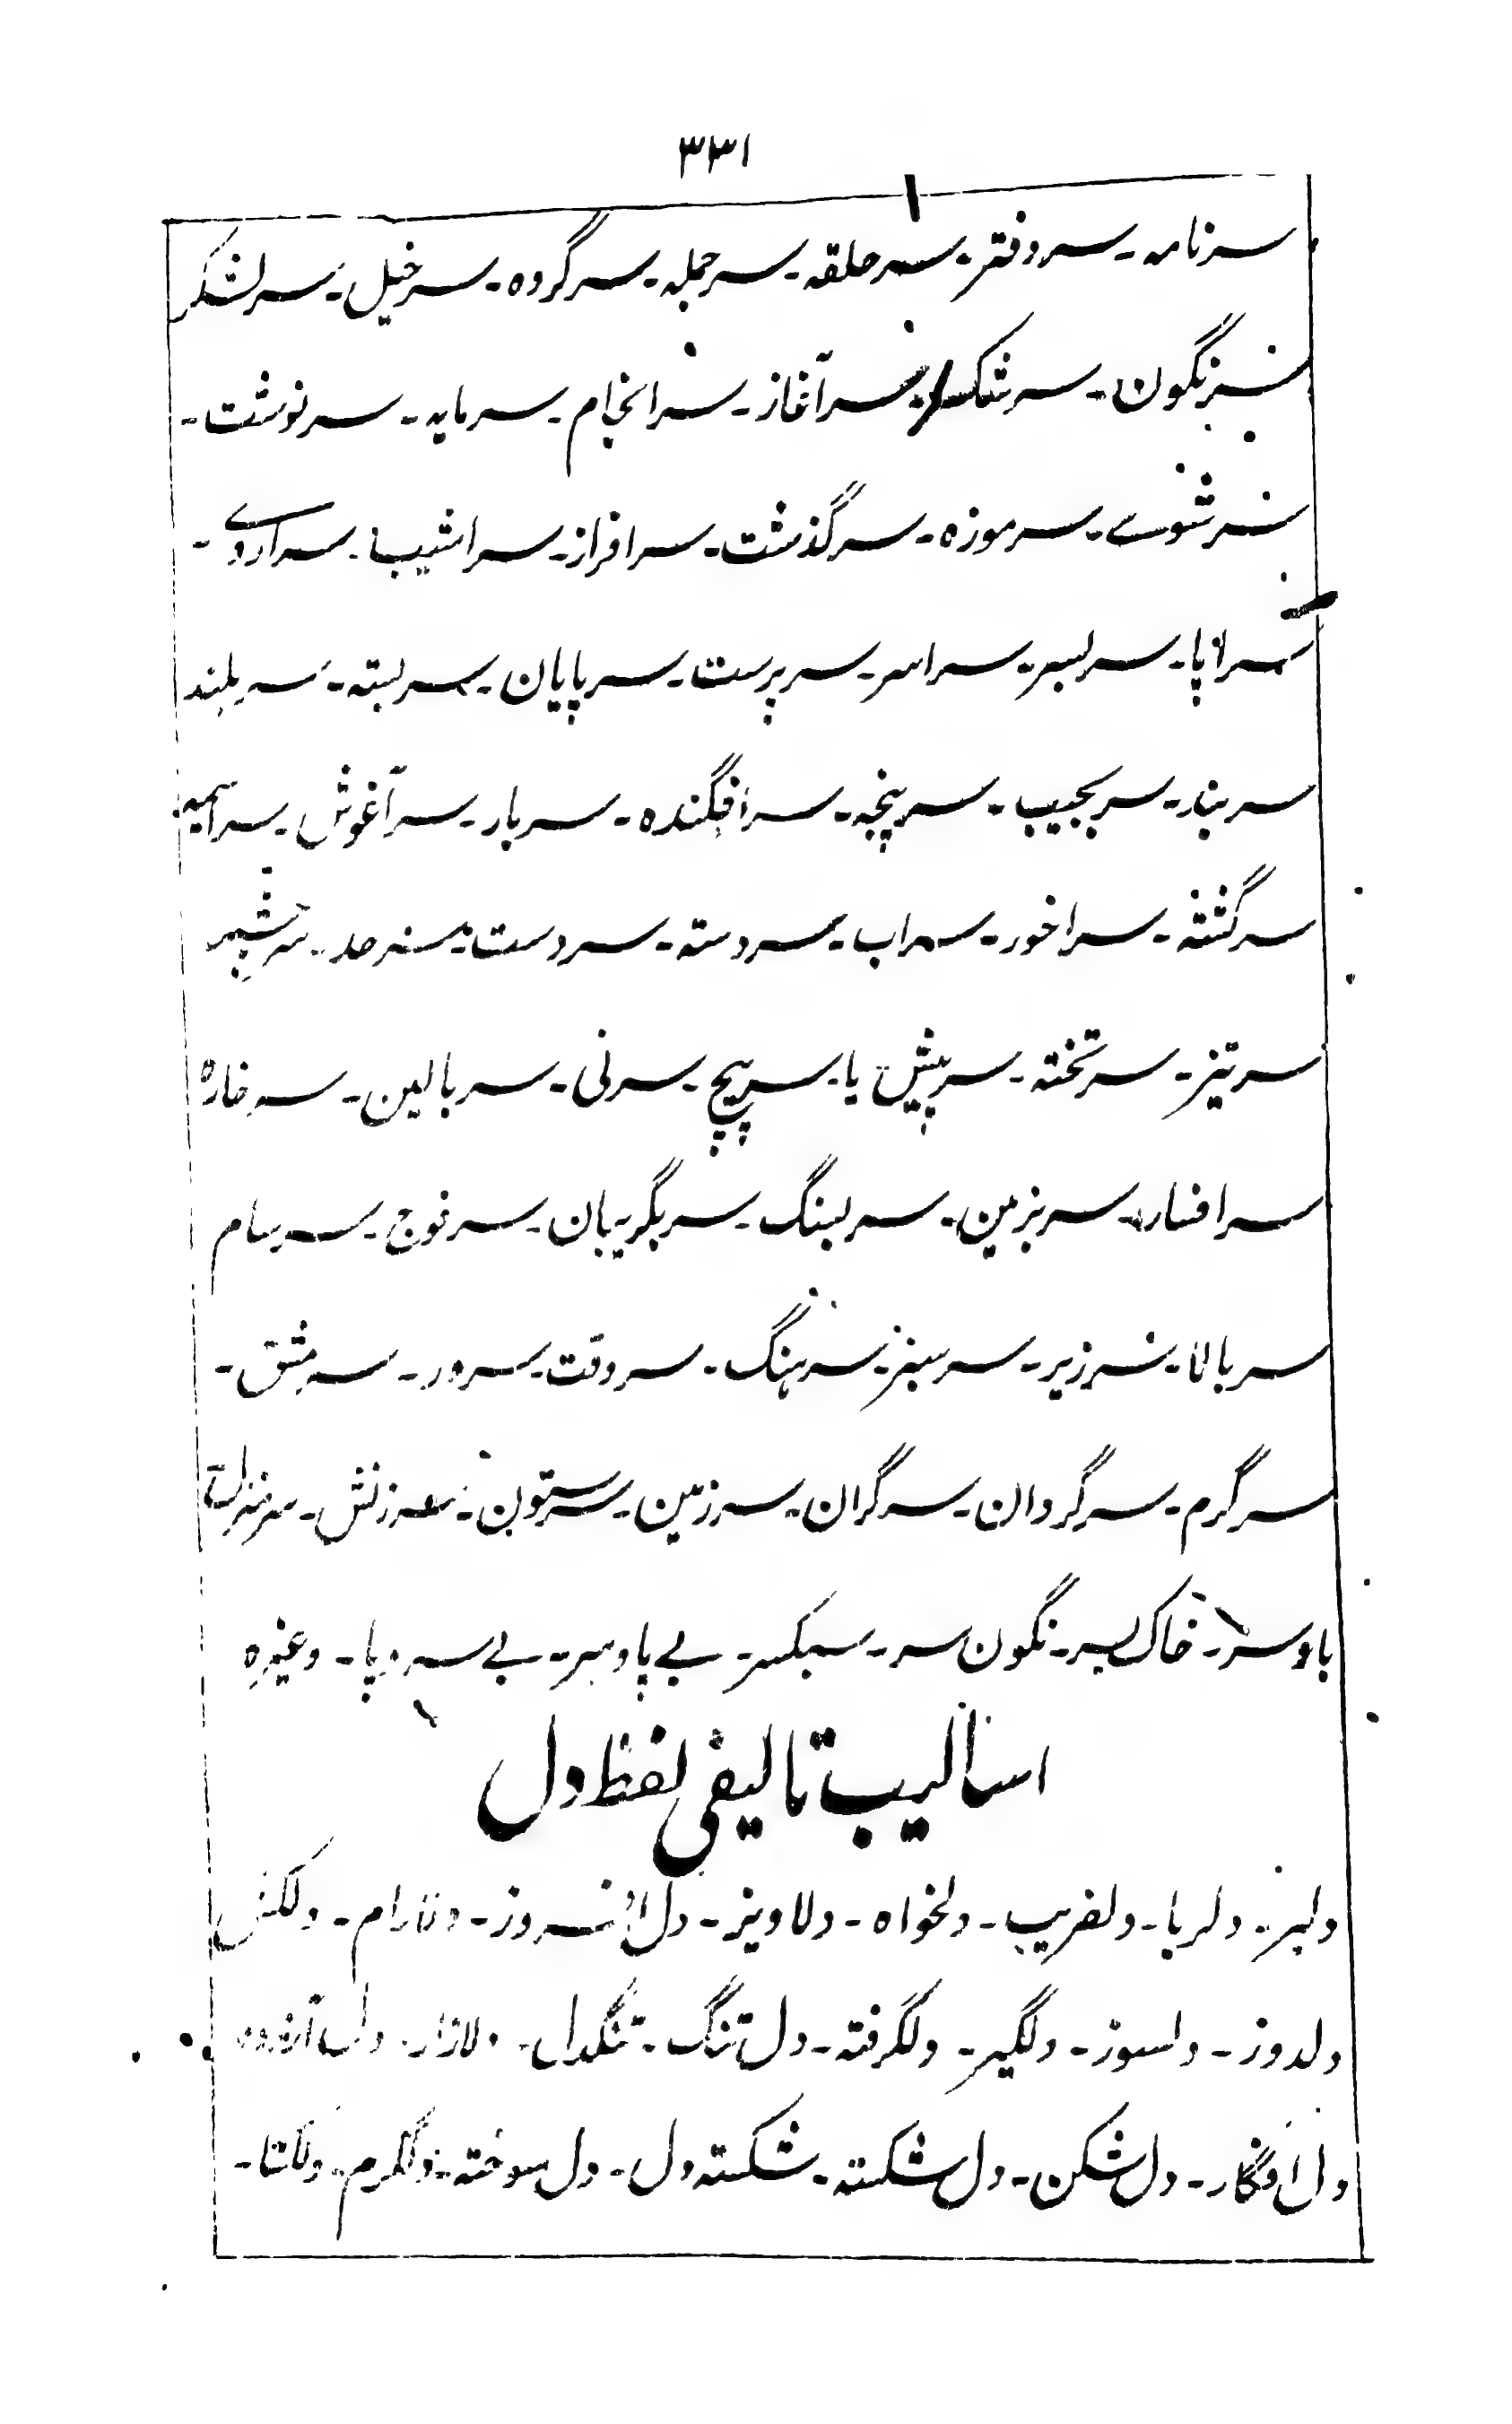 ۳۳۱
سرنامہ۔ سردفتر۔ سرحلقہ۔ سرجملہ۔ سرگروہ۔ سرخیل۔ سرلشکر
سرنگون۔ سرشکسا۔ سرآغاز۔ سرانجام۔ سرمایہ۔ سرنوشت۔
سرشوے۔ سرموزہ۔ سرگذشت۔ سرافراز۔ سراشیب۔
سراپا۔ سربسر۔ سراسر۔ سرپرست۔ سرپایان۔ سربستہ۔ سربلند
سربند۔ سربجیب۔ سرپنجہ۔ سرافگندہ۔ سربار۔ سرآغوش۔ سراسیمہ
سرگشتہ۔ سراخور۔ سراب۔ سردستہ۔ سردست۔ سرحد۔ سرچشمہ
سرتیز۔ سرتختہ۔ سرپیش پا۔ سرپیچ۔ سرنی۔ سربالین۔ سرخارہ
سرافسار۔ سربزمین۔ سربسنگ۔ سربگریبان۔ سرفوج۔ سرسام
سربالا۔ سرزیر۔ سرسبز۔ سرہنگ۔ سروقت۔ سرور۔ سرمشق۔
سرگرم۔ سرگردان۔ سرگران۔ سرزمین۔ سرستون۔ سرزنش۔ سرمنزل۔
بادسر۔ خاک بسر۔ نگون سر۔ سبکسر۔ بے پاوسر۔ بے سروپا۔ وغیرہ
اسالیب تالیفی لفظ دل
دلبر۔ دلربا۔ دلفریب۔ دلخواہ۔ دلاویز۔ دل افروز۔ دلارام۔ دلکش
دلدوز۔ دلسوز۔ دلگیر۔ دلگرفتہ۔ دل تنگ۔ تنگدل۔ دلازار۔ دل آزردہ
دل افگار۔ دل شکن۔ دل شکستہ۔ شکستہ دل۔ دل سوختہ۔ دلگرم۔ دلکشا۔